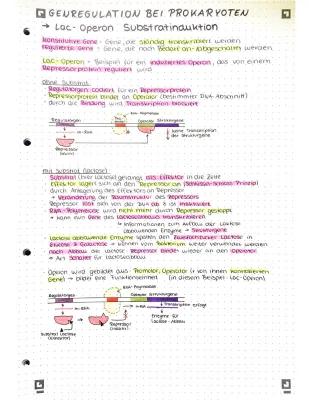 GENREGULATION BEI PROKARYOTEN
→ Lac-Operon Substratinduktion
konstitutive Gene - Gene, die ständig transkribiert werden
regulierte Gene - Gene, die nach Bedarf an-/abgeschalten werden
Lac-Operon - Beispiel für ein induziertes Operon, das von einem
Repressorprotein reguliert wird
ohne Substrat
- Regulatorgen codiert für ein Repressorprotein
- Repressorprotein bindet an Operator (bestimmter DNA-Abschnitt)
- durch die Bindung wird Transkription blockiert
RNA-Polymerase
Regulatorgen Operator Strukturgene
m-RNA
keine Transkription
der Strukturgene
Repressor
(aktiv)
mit Substrat (Lactose)
- Substrat (hier Lactose) gelangt als Effektor in die Zelle
- Effektor lagert sich an den Repressor an (Schlüssel-Schloss-Prinzip)
- durch Anlagerung des Effektors an Repressor
→ Veränderung der Raumstruktur des Repressors
- Repressor löst sich von der DNA ab & ist inaktiviert
- RNA-Polymerase wird nicht mehr durch Repressor gestoppt
→ kann nun Gene des Lactoseabbaus transkribieren
→ Informationen zum Aufbau der Lactose
abbauenden Enzyme → Strukturgene
- Lactose abbauende Enzyme spalten den Zweifachzucker Lactose in
Glucose & Galactose → können vom Bakterium weiter verwendet werden
- nach Abbau der Lactose: Repressor bindet wieder an den Operator
→ Art Schalter für Lactoseabbau
- Operon wird gebildet aus: Promotor, Operator (& von ihnen kontrollierten
Gene) → bilden eine Funktionseinheit (in diesem Beispiel Lac-Operon)
RNA-Polymerase
Regulatorgen Operator Strukturgene
m-RNA Transkription erfolgt
Substrat Lactose
(Effektor)
Repressor
(inaktiv)
Enzyme für
Lactose-Abbau